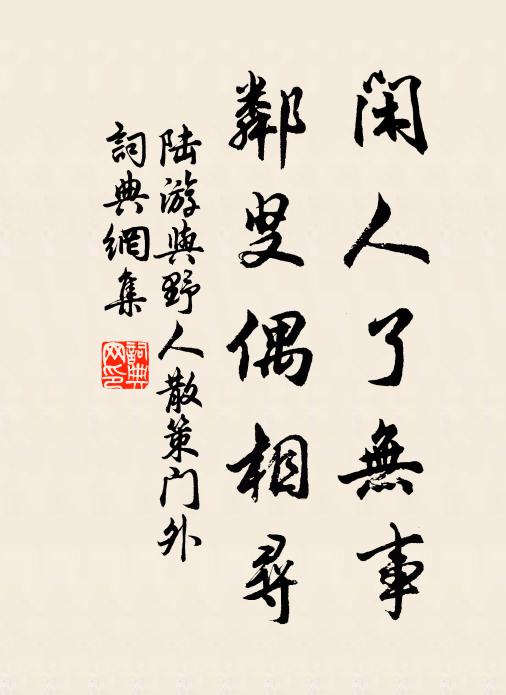 閑人了無事
鄰叟偶相尋
陆游與野人散策门外
詞典網集
詞典網印